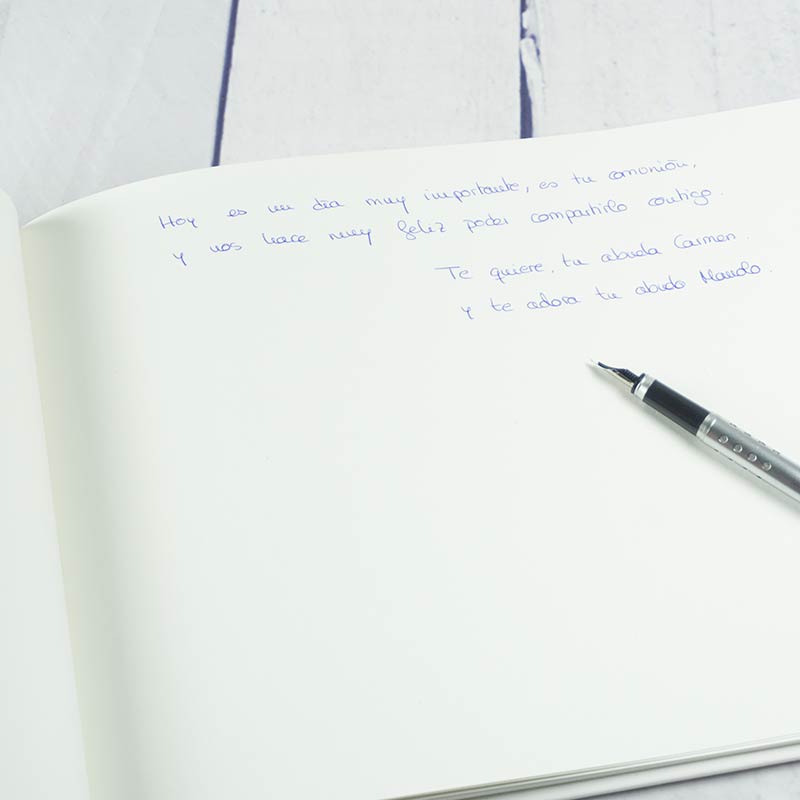 Hoy es un día muy importante, es tu comunión,
y nos hace muy feliz poder compartirlo contigo.
Te quiere, tu abuela Carmen.
y te adora tu abuelo Manolo.